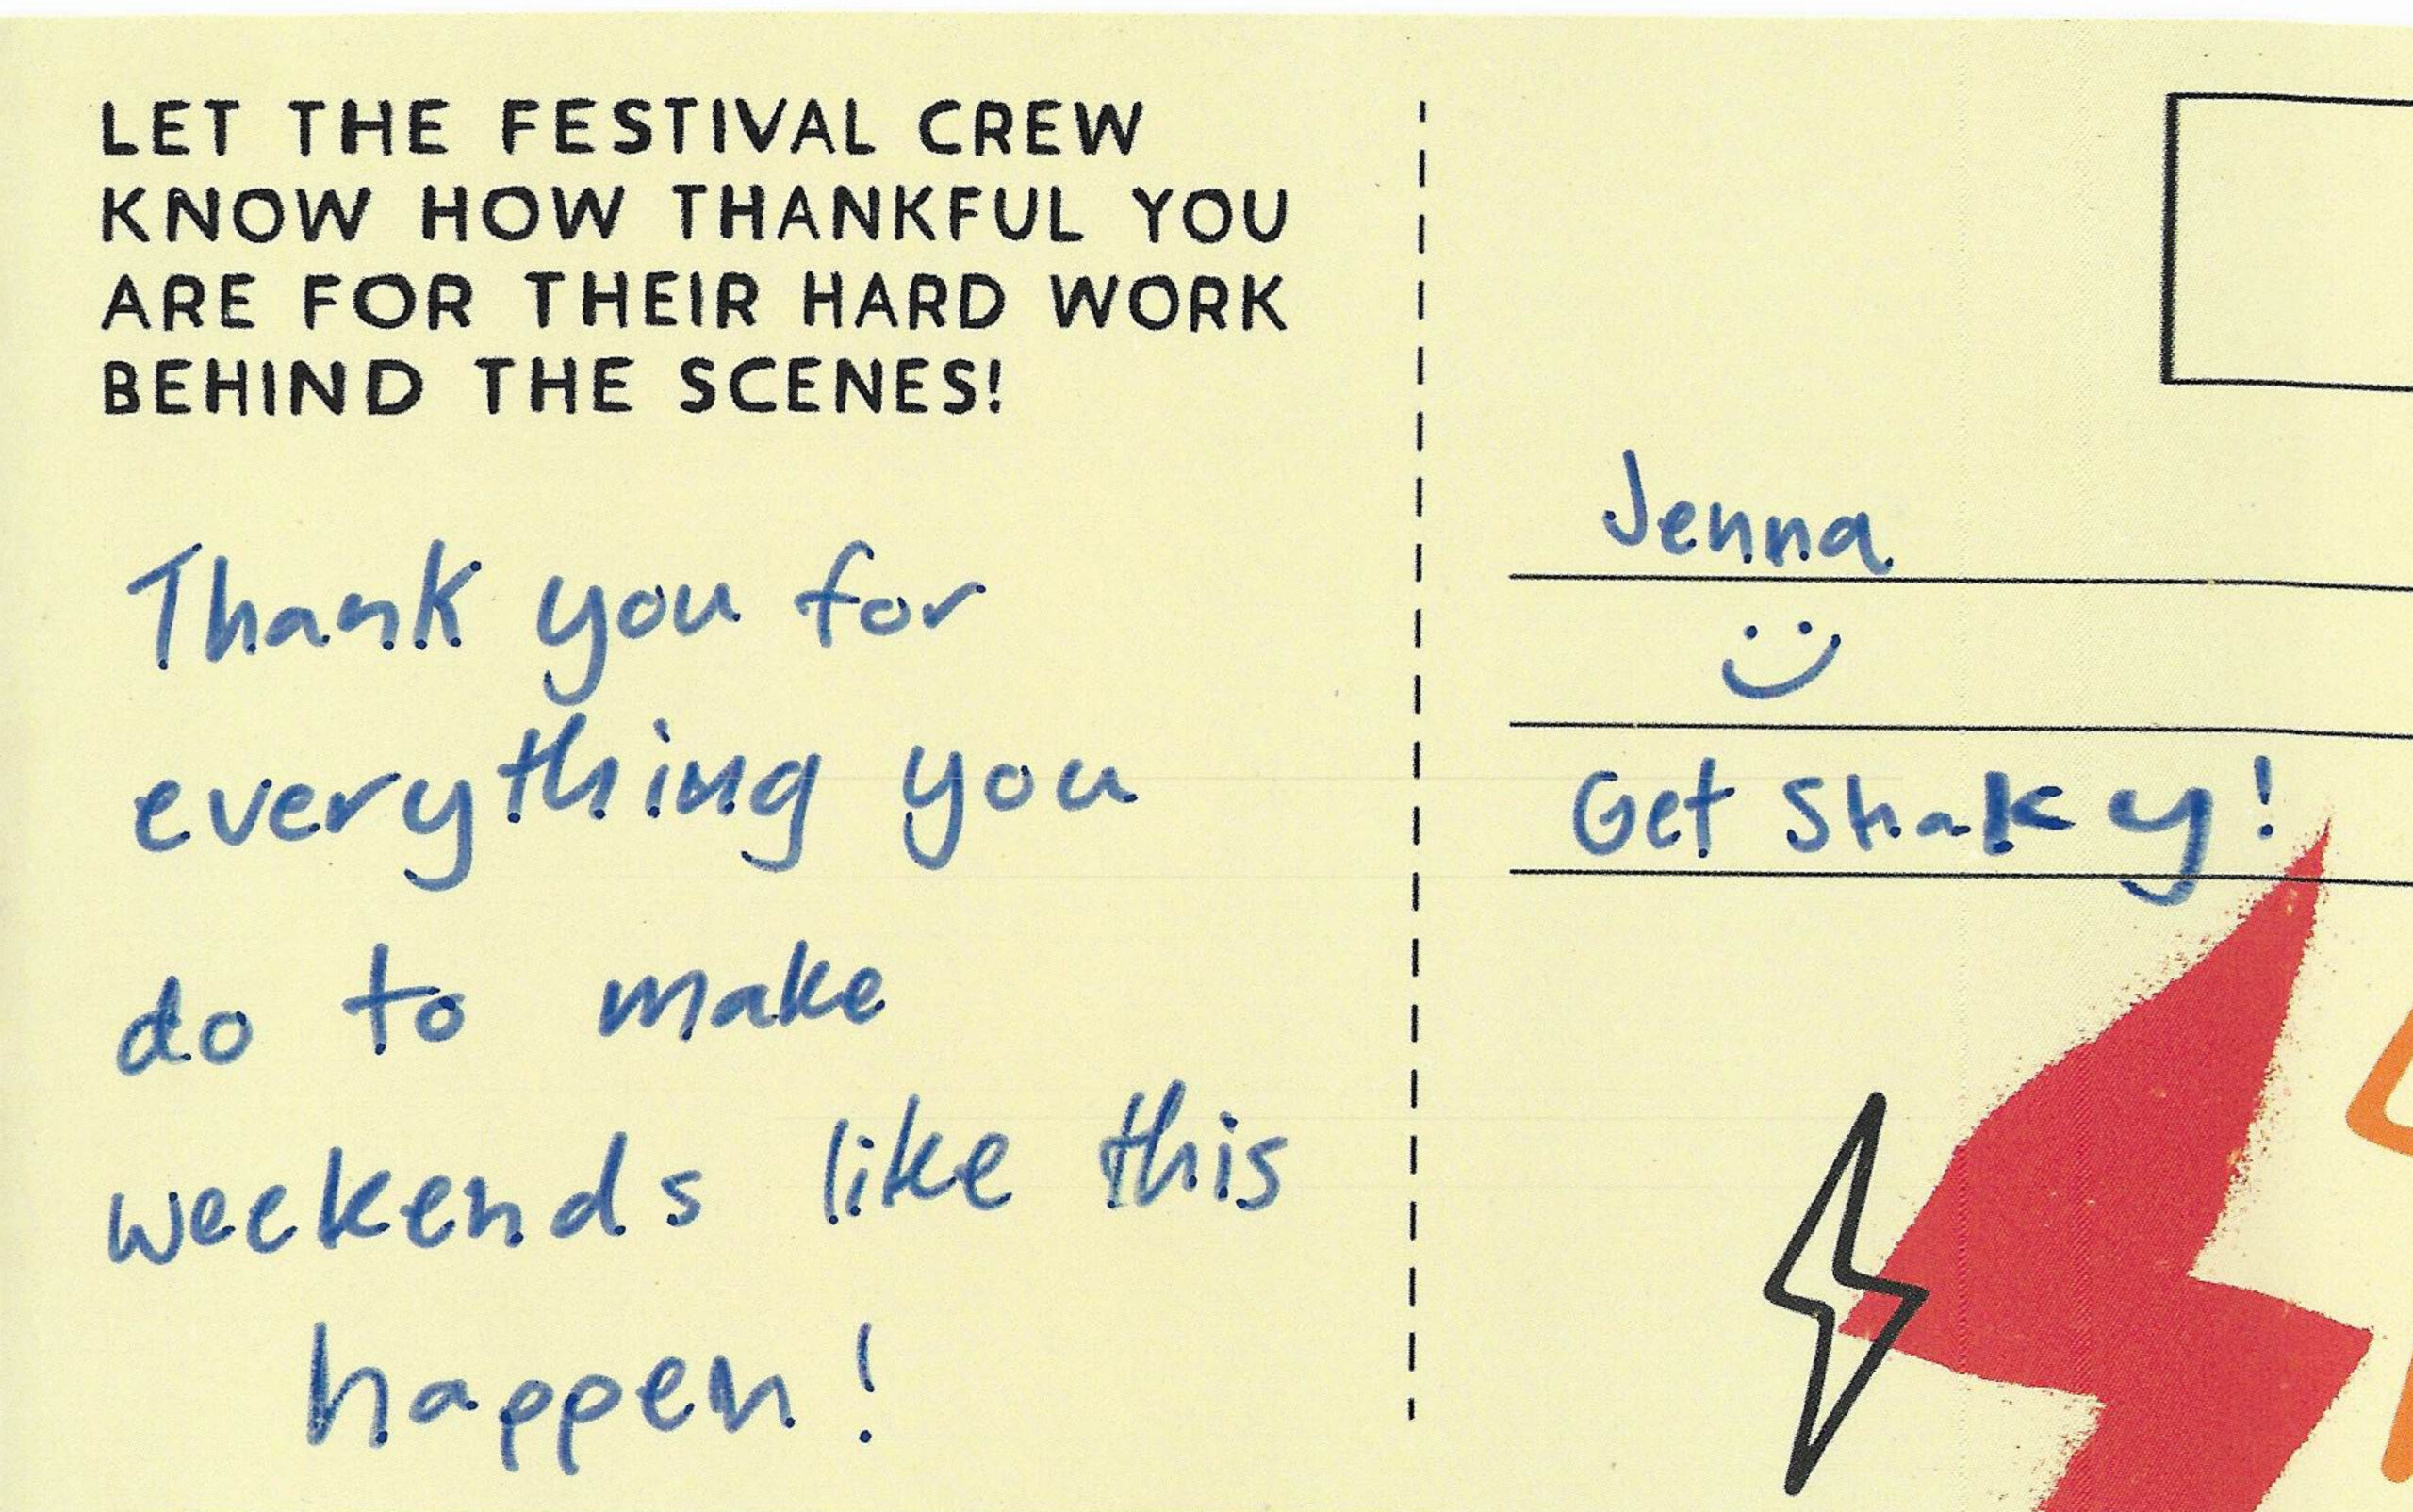 LET THE FESTIVAL CREW
KNOW HOW THANKFUL YOU
ARE FOR THEIR HARD WORK
BEHIND THE SCENES!
Thank you for
everything you
do to make
weekends like this
happen!
Jenna
Get Shaky!